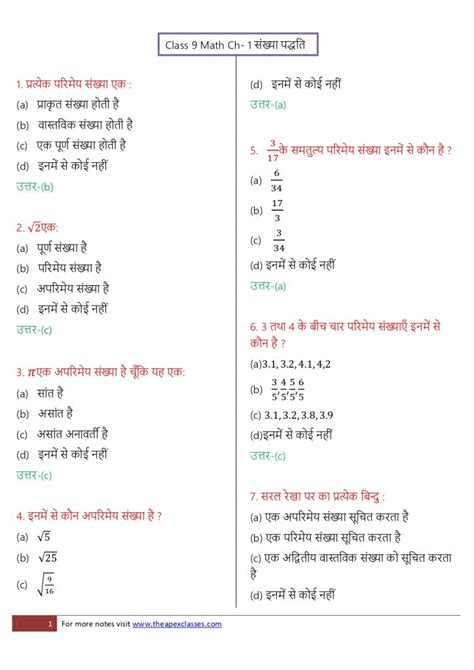 Class 9 Math Ch- 1 संख्या पद्धति
1. प्रत्येक परिमेय संख्या एक :
(a) प्राकृत संख्या होती है
(b) वास्तविक संख्या होती है
(c) एक पूर्ण संख्या होती है
(d) इनमें से कोई नहीं
उत्तर-(b)
2. √2एक:
(a) पूर्ण संख्या है
(b) परिमेय संख्या है
(c) अपरिमेय संख्या है
(d) इनमें से कोई नहीं
उत्तर-(c)
3. πएक अपरिमेय संख्या है चूँकि यह एक:
(a) सांत है
(b) असांत है
(c) असांत अनावर्ती है
(d) इनमें से कोई नहीं
उत्तर-(c)
4. इनमें से कौन अपरिमेय संख्या है ?
(a) √5
(b) √25
(c) √9/16
(d) इनमें से कोई नहीं
उत्तर-(a)
5. 3/17के समतुल्य परिमेय संख्या इनमें से कौन है ?
(a) 6/34
(b) 17/3
(c) 3/34
(d) इनमें से कोई नहीं
उत्तर-(a)
6. 3 तथा 4 के बीच चार परिमेय संख्याएँ इनमें से
कौन है ?
(a)3.1, 3.2, 4.1, 4,2
(b) 3/5,4/5,5/5,6/5
(c) 3.1, 3.2, 3.8, 3.9
(d)इनमें से कोई नहीं
उत्तर-(c)
7. सरल रेखा पर का प्रत्येक बिन्दु :
(a) एक अपरिमेय संख्या सूचित करता है
(b) एक परिमेय संख्या सूचित करता है
(c) एक अद्वितीय वास्तविक संख्या को सूचित करता
है
(d) इनमें से कोई नहीं
1 For more notes visit www.theapexclasses.com